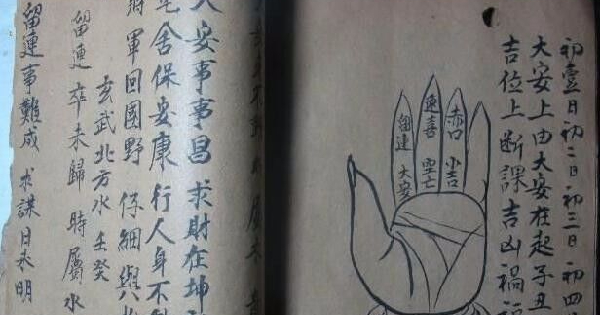 初壹日初二日初三日初四
大安上由大安在起子丑
吉位上断課吉凶禍福
赤口 小吉
速喜 空亡
留連 大安
大安事事昌 求財在坤
宅舍保安康 行人身不
將軍回園野 仔細與
玄武北方水 壬癸
留連卒未歸 時屬水
留連事難成 求謀日未明